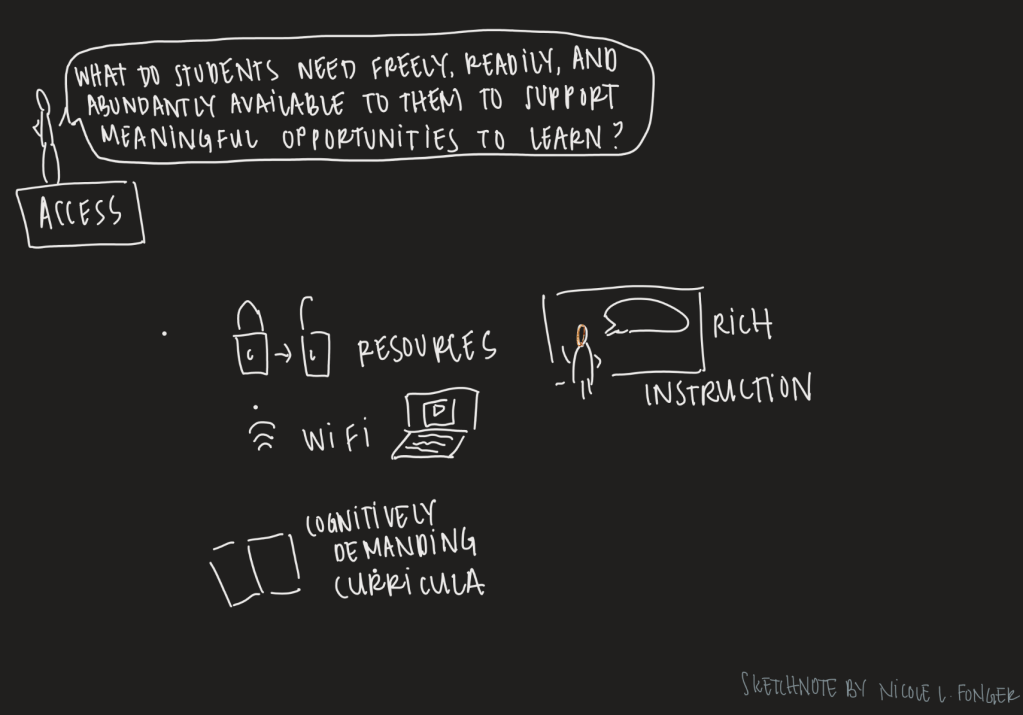 WHAT DO STUDENTS NEED FREELY, READILY, AND
ABUNDANTLY AVAILABLE TO THEM TO SUPPORT
MEANINGFUL OPPORTUNITIES TO LEARN?
ACCESS
RESOURCES
RICH
INSTRUCTION
WiFi
COGNITIVELY
DEMANDING
CURRICULA
SKETCHNOTE BY NICOLE L. FONGER